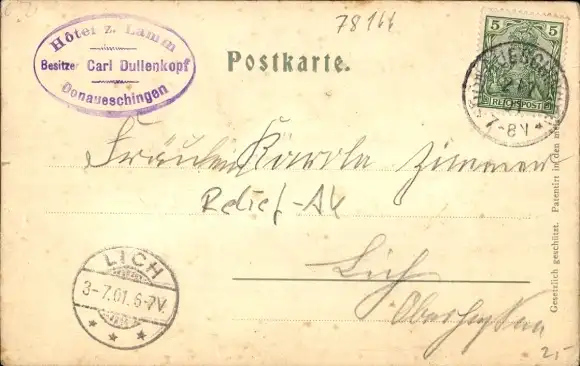 78166
Hôtel z. Lamm
Besitzer Carl Dullenkopf
Donaueschingen
Postkarte.
5 5
REICHSPOST
7-8V
Fräulein Karola Zimmer
Relief-Ak
Lich
Oberhessen
LICH
3-7.01.6-7V.
Gesetzlich geschützt. Patentirt in den meis
2,-